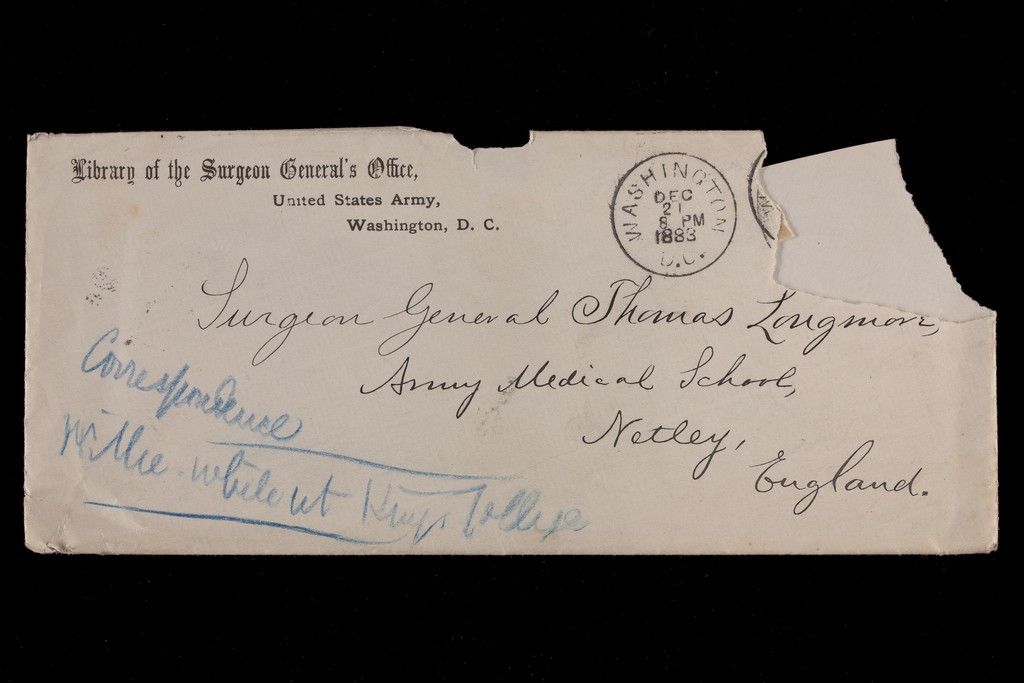 Library of the Surgeon General's Office,
United States Army,
Washington, D. C.
WASHINGTON
DEC
21
8 PM
1883
D.C.
Surgeon General Thomas Longmore,
Army Medical School,
Netley,
England.
Correspondence
Willie - while at Kings College